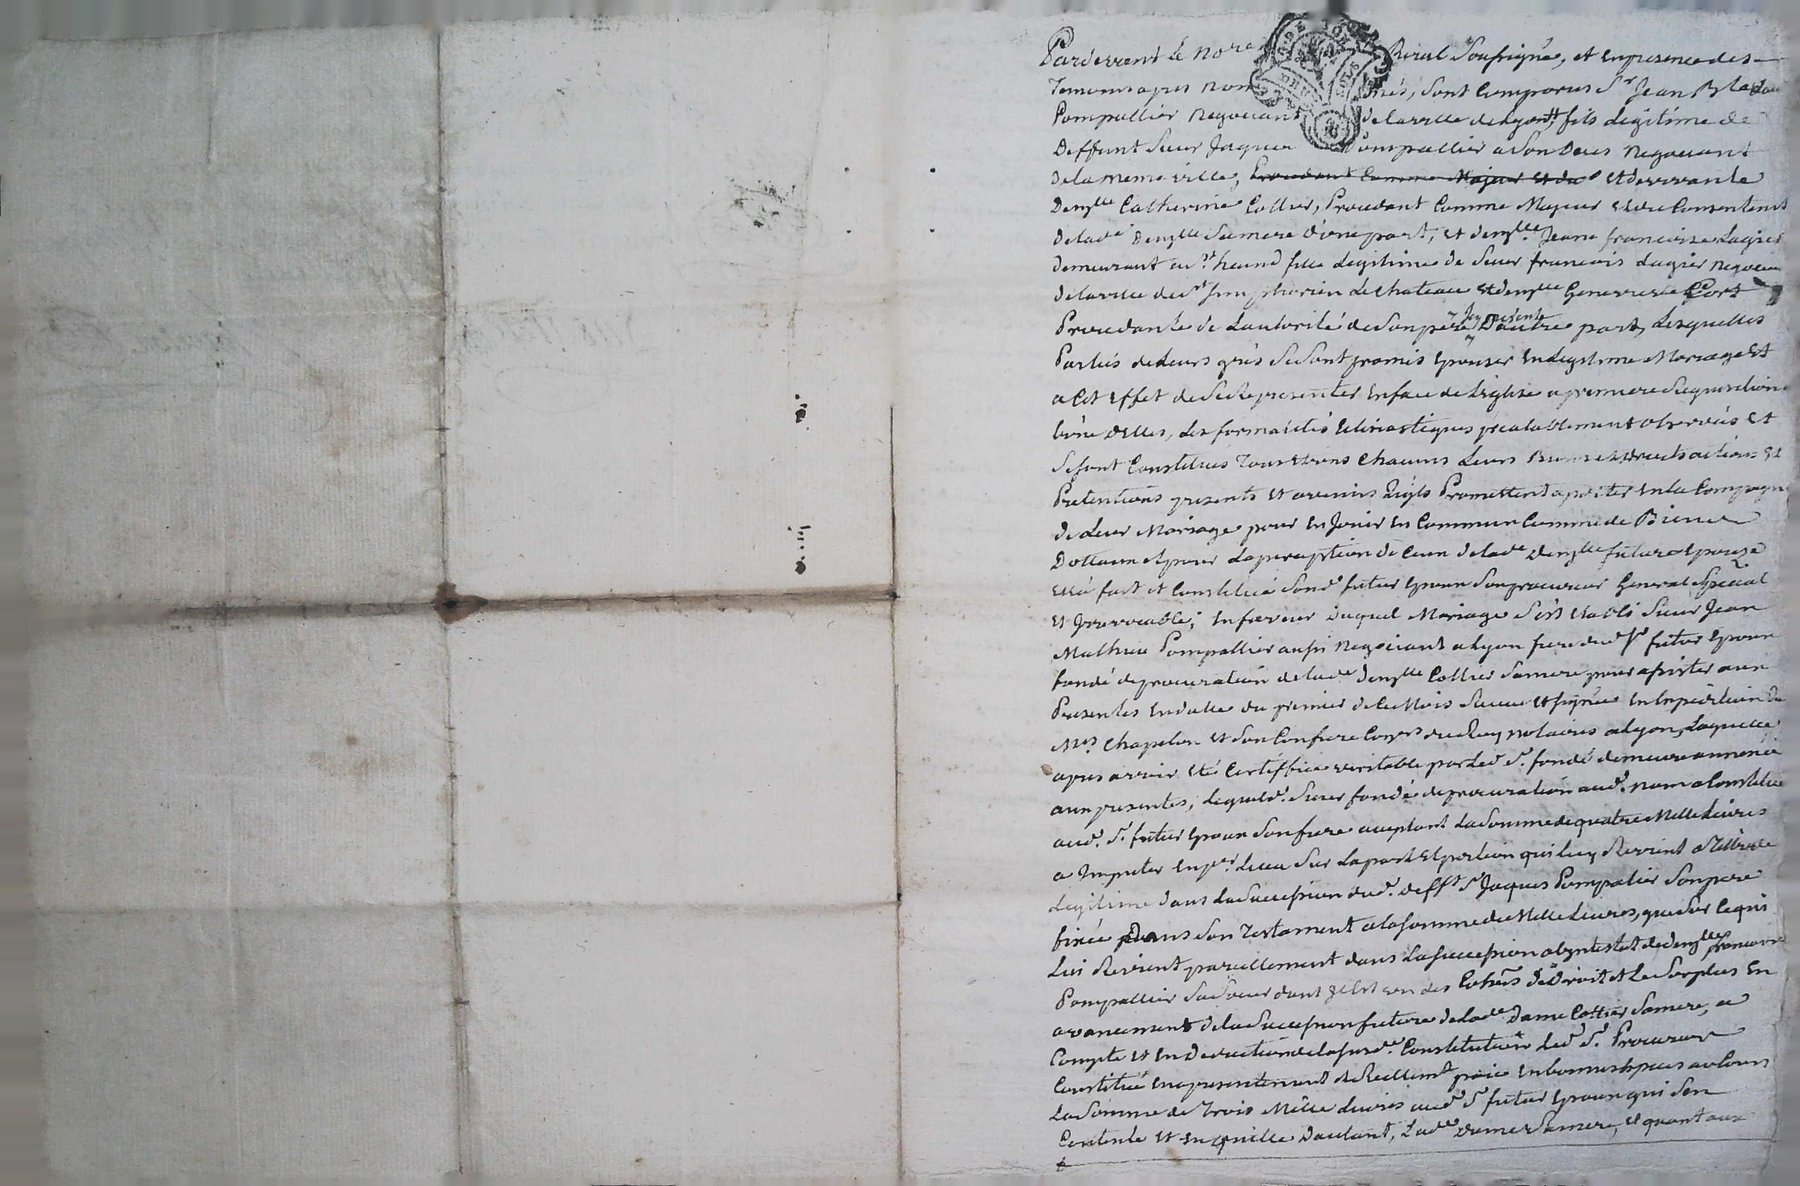 Pardevant le Rural Soussigné, et en presence des
Temoins apres nommés, Sont Comparus Sr Jean
Pompallier Negociant de la ville de Lyon, fils Legitime de
Deffunt Sieur Jaques Pompallier a Son Deces Negociant
De la meme ville, Procedant Comme Majeur Et du Et de vivante
Demlle Catherine Collier, Procedant Comme Majeur et du Consentement
De lade Demlle Sa mere d'une part, Et demlle Jeane francoise Lagier
demeurant au fille Legitime de Sieur francois Lagier negociant
de la ville de St Simphorien Le Chateau et demlle Genevieve
Procedante de L'autorité de Son pere jcy present D'autre part, Lesquelles
Parties de Leurs grés Se Sont promis Epouser En Legitime Mariage Et
a Cet Effet de Se Representer En face de L'eglise a premiere Requisition
L'une d'Elles, Les formalités prealablement observées Et
Se Sont Constitués Tous Et uns Chacuns Leurs Biens droits actions Et
Pretentions presents Et avenirs Promettent aporter En la Compagnie
de Leur Mariage pour En Jouir En Commun Comme de Biens
Dottaux Et pour La perception de Ceux de lade Demlle future Epouse
Elle a fait et Constitué Son d. futur Epoux Son procureur General Special
Et Jrrevocable; En faveur Duquel Mariage S'est Etabli Sieur Jean
Mathieu Pompallier aussi Negociant a Lyon frere dud. Sr futur Epoux
fondé de procuration de lade Demlle Collier Sa mere pour assister aux
Presentes En datte du premier de Ce Mois Recue Et Signée En Expedition de
Mes Chapelon Et Son Confrere Coners du Roy notaires a Lyon, Laquelle
apres avoir Eté Certiffiée veritable par Led. Sr. fondé demeure annexée
aux presentes, Lequel d. Sieur fondé de procuration aud. nom a Constitué
aud. Sr. futur Epoux Son frere acceptant La Somme de quatre Mille Livres
a Imputer En per Lieu Sur La part Et portion qui Luy Revient
Legitime dans La Succession dud. defft Sr Jaques Pompalier Son pere
fixée Dans Son Testament a la Somme de Mille Livres, que Sur Ce qui
Lui Revient pareillement dans La Succession abintestat de demlle
Pompallier Sa Soeur dont Jl Est un des Cohers De Droit et Le Surplus En
avancement de la Succession future de lade Dame Collier Sa mere, a
Compte Et En Deduction de la Susde Constitution Led. Sr. Procureur
Constitué En presentement et Reellemt payé En bonnes Especes au Cours
La Somme de Trois Mille Livres aud. Sr futur Epoux qui S'en
Contente Et En quitte D'autant, Lade Dame Sa mere, Et quant aux